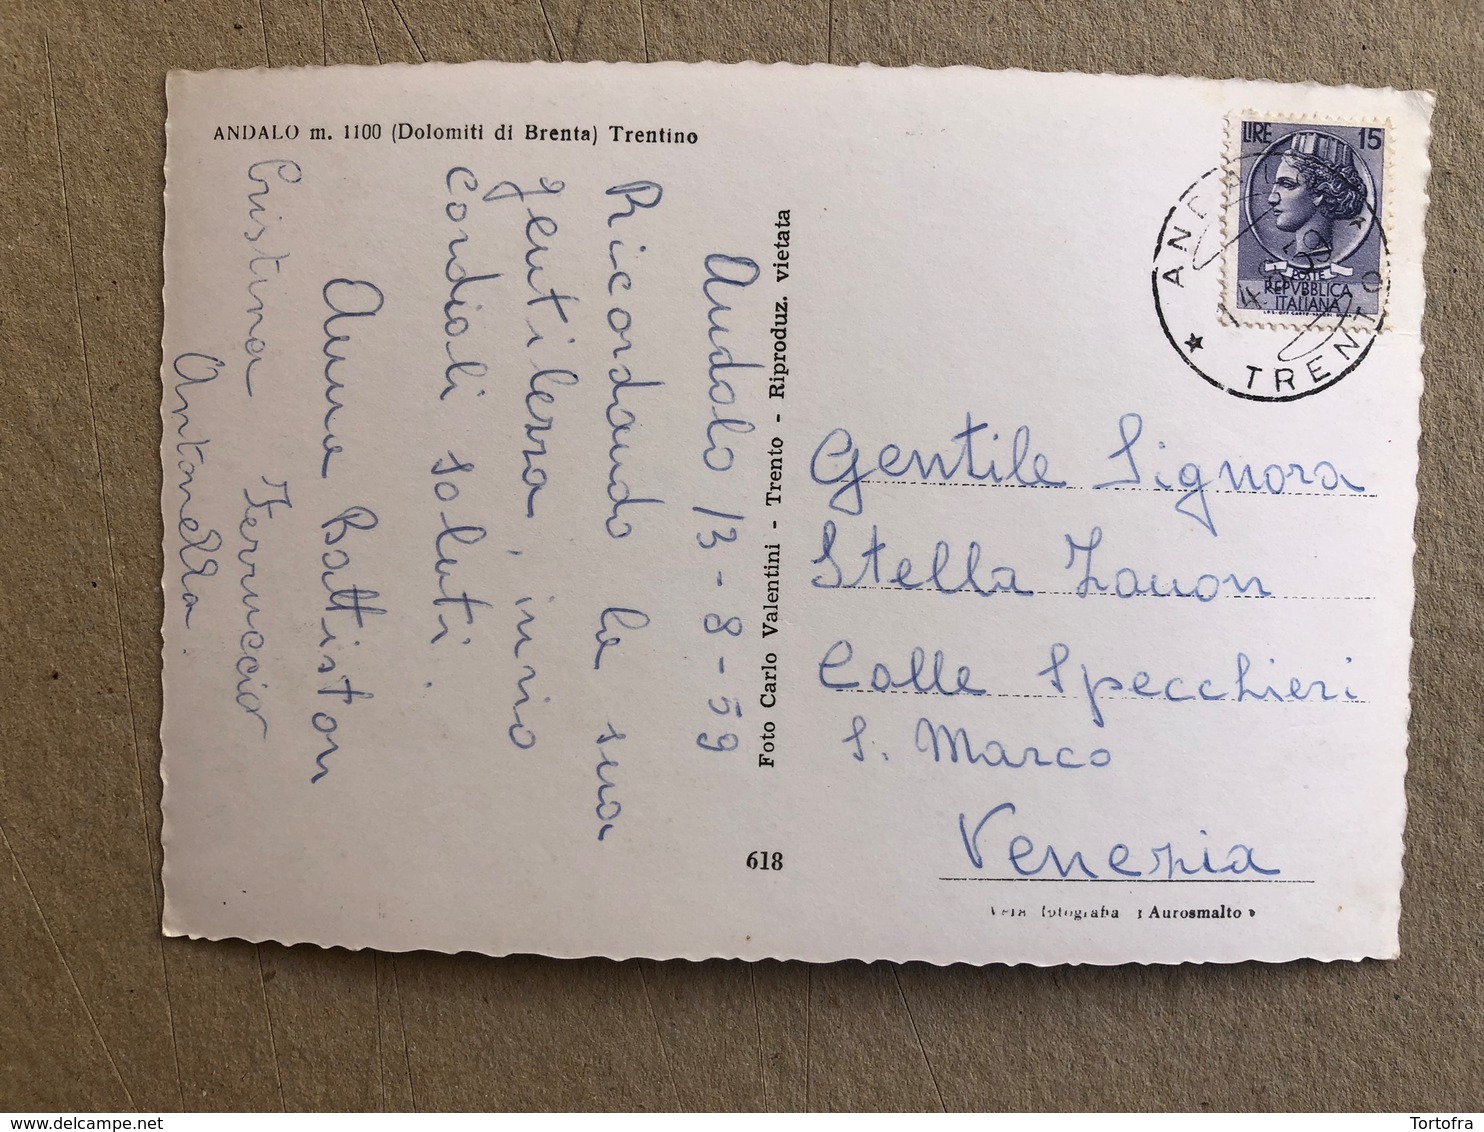 ANDALO m. 1100 (Dolomiti di Brenta) Trentino
Andalo 13-8-59
Ricordando la sua
gentilezza, invio
cordiali saluti.
Anna Battiston
Cristina Ferruccio
Antonella.
Foto Carlo Valentini - Trento - Riproduz. vietata
618
LIRE 15
POSTE
REPVBBLICA
ITALIANA
ANDALO
TRENTO
Gentile Signora
Stella Zanon
Calle Specchieri
S. Marco
Venezia
Vera fotografia « Aurosmalto »
Tortofra